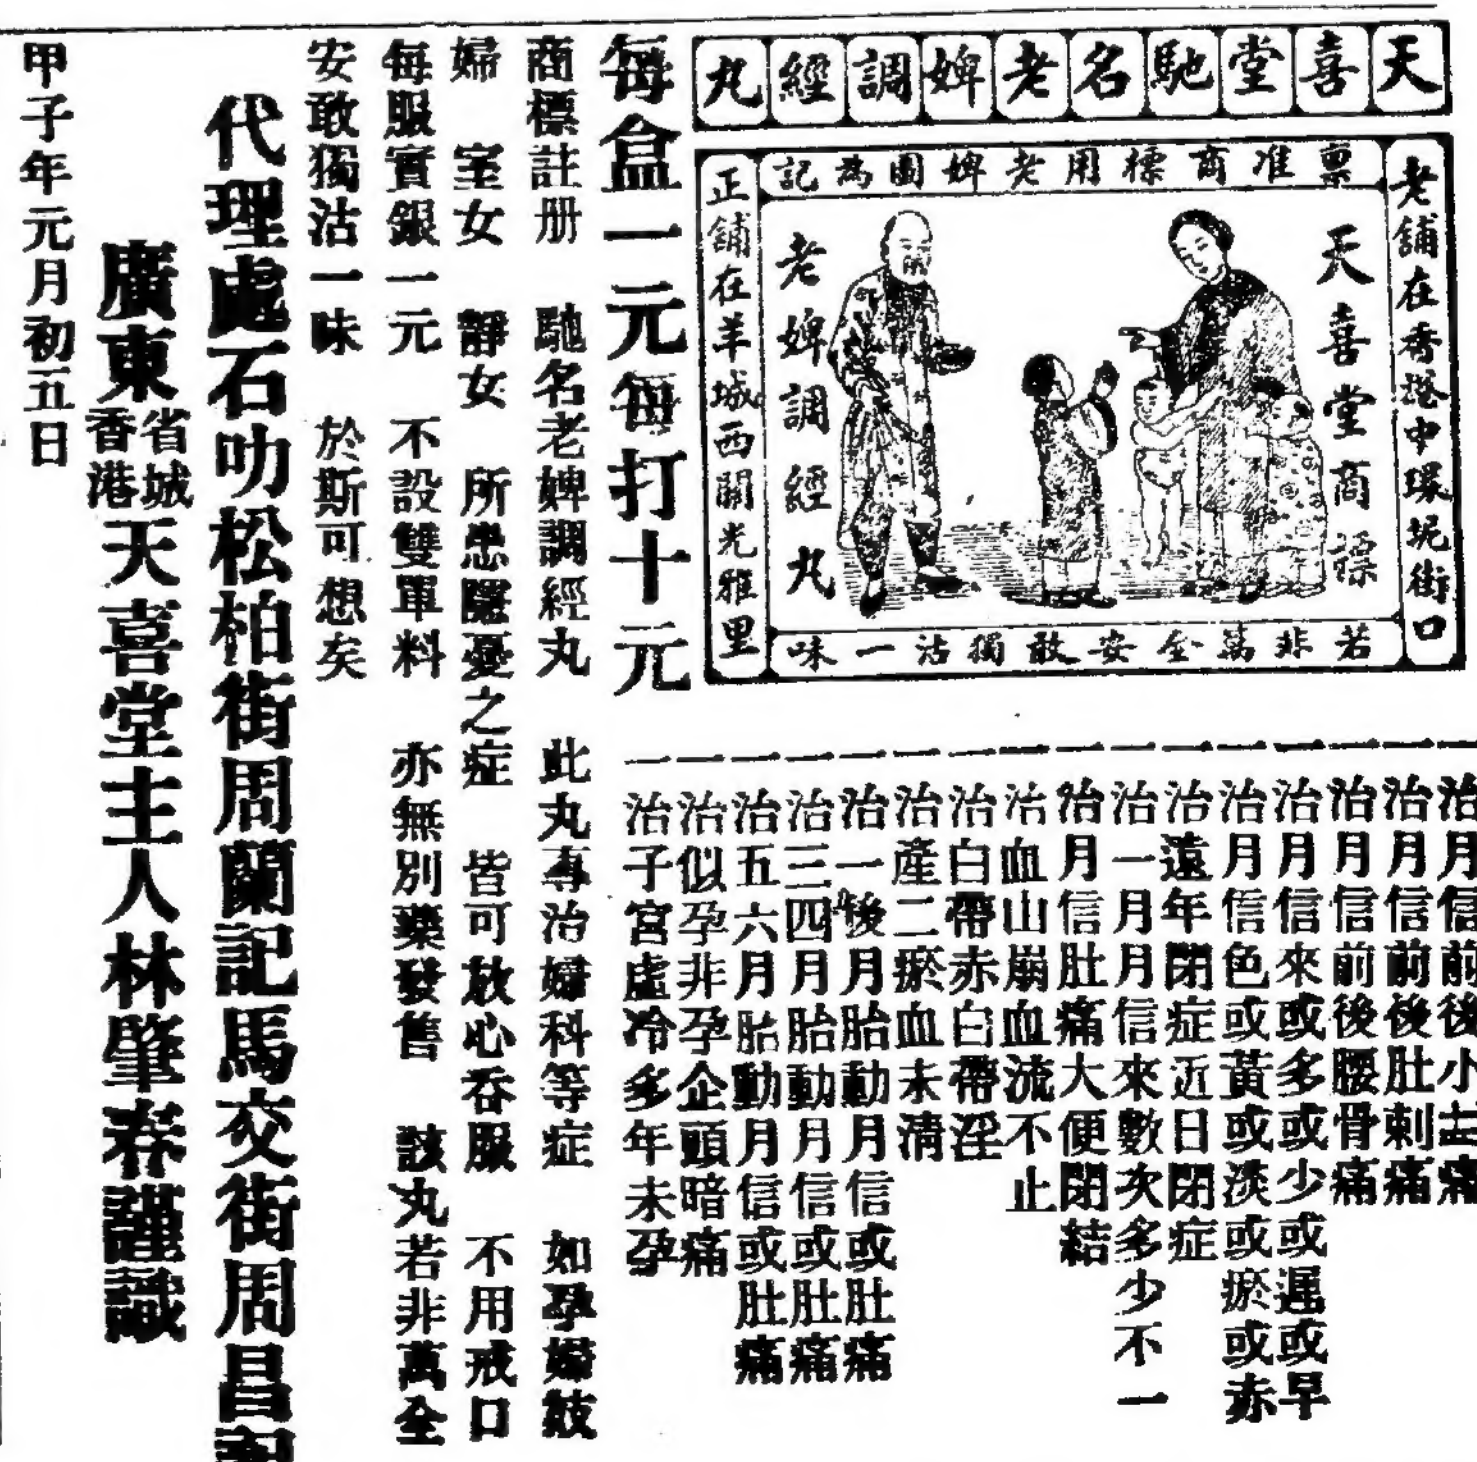 天喜堂馳名老婢調經丸
稟准商標用老婢圖為記
老舖在香港中環坭街口
天喜堂商標
老婢調經丸
正舖在羊城西關光雅里
若非萬全安敢獨沽一味
一治月信前後小去痛
一治月信前後肚刺痛
一治月信前後腰骨痛
一治月信來或多或少或遲或早
一治月信色或黃或淡或瘀或赤
一治遠年閉症近日閉症
一治一月月信來數次多少不一
一治月信肚痛大便閉結
一治血山崩血流不止
一治白帶赤白帶淫
一治產二瘀血未清
一治一後月胎動月信或肚痛
一治三四月胎動月信或肚痛
一治五六月胎動月信或肚痛
一治似孕非孕企頭暗痛
一治子宮虛冷多年未孕
每盒一元每打十元
商標註册 馳名老婢調經丸 此丸專治婦科等症 如孕婦妓
婦 室女 靜女 所患隱憂之症 皆可放心吞服 不用戒口
每服實銀一元 不設雙單料 亦無別藥發售 該丸若非萬全
安敢獨沽一味 於斯可想矣
代理處石叻松柏街周蘭記馬交街周昌記
廣東省城香港天喜堂主人林肇春謹識
甲子年元月初五日